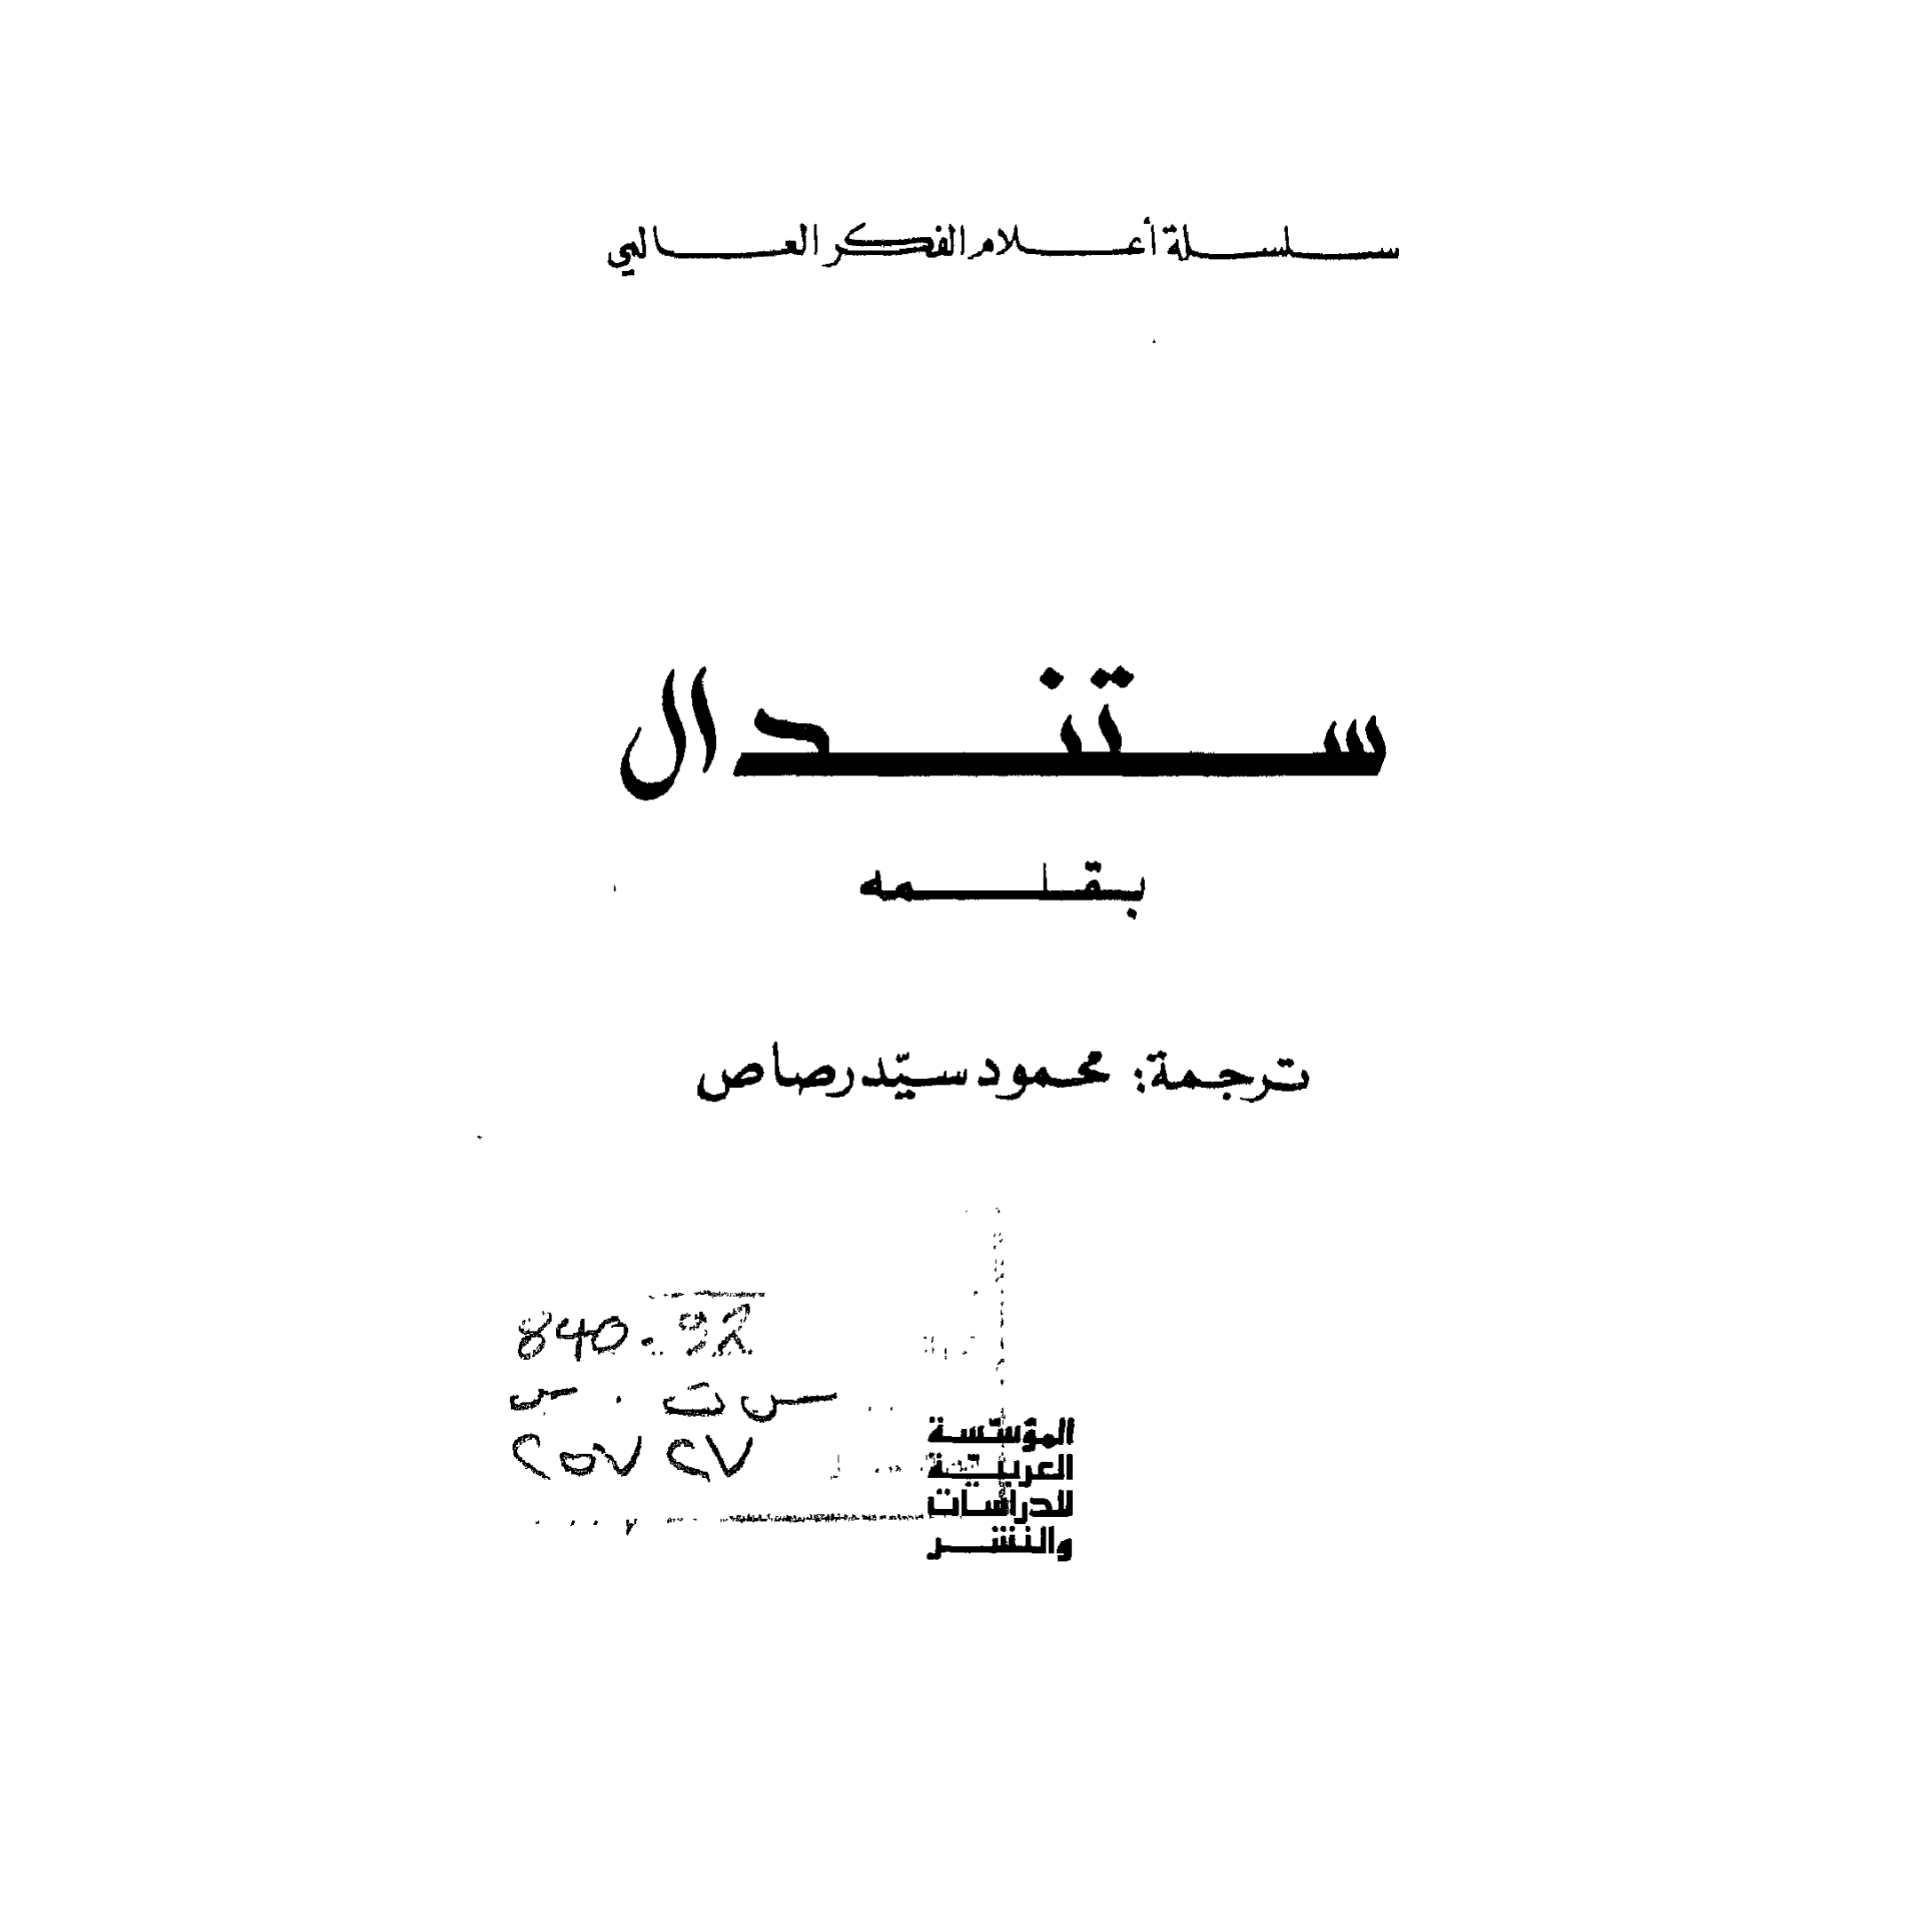 سلسلة أعلام الفكر العالمي
ستندال
بقلمه
ترجمة: محمود سيّد رصاص
840.92
س ت . س
٢٥٧٢٧
المؤسّسة
العربيّة
للدراسات
والنشر